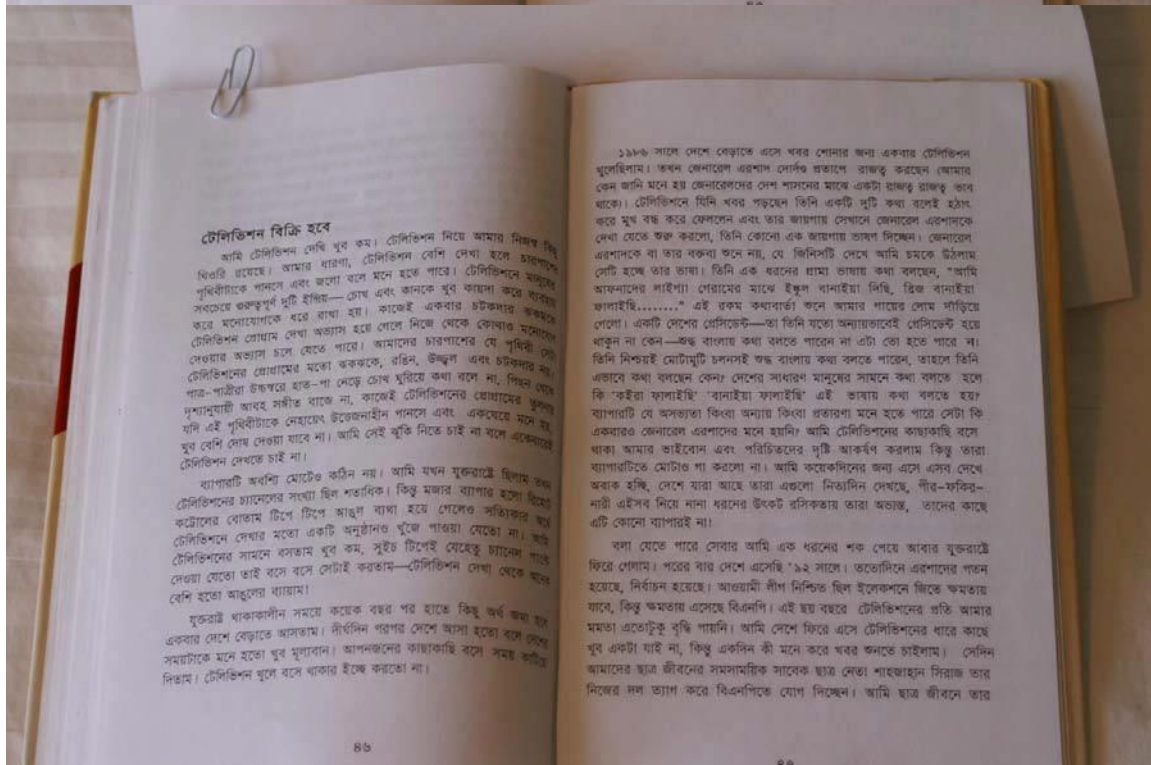 টেলিভিশন বিক্রি হবে
আমি টেলিভিশন দেখি খুব কম। টেলিভিশন নিয়ে আমার নিজস্ব কিছু
থিওরি রয়েছে। আমার ধারণা, টেলিভিশন বেশি দেখা হলে চারপাশের
পৃথিবীটাকে পানসে এবং জলো বলে মনে হতে পারে। টেলিভিশনে মানুষের
সবচেয়ে গুরুত্বপূর্ণ দুটি ইন্দ্রিয়— চোখ এবং কানকে খুব কায়দা করে ব্যবহার
করে মনোযোগকে ধরে রাখা হয়। কাজেই একবার চটকদার ঝকমকে
টেলিভিশন প্রোগ্রাম দেখা অভ্যাস হয়ে গেলে নিজে থেকে কোথাও মনোযোগ
দেওয়ার অভ্যাস চলে যেতে পারে। আমাদের চারপাশের যে পৃথিবী সেটা
টেলিভিশনের প্রোগ্রামের মতো ঝকঝকে, রঙিন, উজ্জ্বল এবং চটকদার নয়।
পাত্র-পাত্রীরা উচ্চস্বরে হাত-পা নেড়ে চোখ ঘুরিয়ে কথা বলে না, পিছন থেকে
দৃশ্যানুযায়ী আবহ সঙ্গীত বাজে না, কাজেই টেলিভিশনের প্রোগ্রামের তুলনায়
যদি এই পৃথিবীটাকে নেহায়েৎ উত্তেজনাহীন পানসে এবং একঘেয়ে মনে হয়,
খুব বেশি দোষ দেওয়া যাবে না। আমি সেই ঝুঁকি নিতে চাই না বলে একেবারেই
টেলিভিশন দেখতে চাই না।
ব্যাপারটি অবশ্যি মোটেও কঠিন নয়। আমি যখন যুক্তরাষ্ট্রে ছিলাম তখন
টেলিভিশনের চ্যানেলের সংখ্যা ছিল শতাধিক। কিন্তু মজার ব্যাপার হলো রিমোট
কন্ট্রোলের বোতাম টিপে টিপে আঙুল ব্যথা হয়ে গেলেও সত্যিকার অর্থে
টেলিভিশনে দেখার মতো একটি অনুষ্ঠানও খুঁজে পাওয়া যেতো না। আমি
টেলিভিশনের সামনে বসতাম খুব কম, সুইচ টিপেই যেহেতু চ্যানেল পাল্টে
দেওয়া যেতো তাই বসে বসে সেটাই করতাম—টেলিভিশন দেখা থেকে অনেক
বেশি হতো আঙুলের ব্যায়াম।
যুক্তরাষ্ট্র থাকাকালীন সময়ে কয়েক বছর পর হাতে কিছু অর্থ জমা হলে
একবার দেশে বেড়াতে আসতাম। দীর্ঘদিন পরপর দেশে আসা হতো বলে দেশের
সময়টাকে মনে হতো খুব মূল্যবান। আপনজনের কাছাকাছি বসে সময় কাটিয়ে
দিতাম। টেলিভিশন খুলে বসে থাকার ইচ্ছে করতো না।
৪৬
১৯৮৬ সালে দেশে বেড়াতে এসে খবর শোনার জন্য একবার টেলিভিশন
খুলেছিলাম। তখন জেনারেল এরশাদ দোর্দণ্ড প্রতাপে রাজত্ব করছেন (আমার
কেন জানি মনে হয় জেনারেলদের দেশ শাসনের মাঝে একটা রাজত্ব রাজত্ব ভাব
থাকে)। টেলিভিশনে যিনি খবর পড়ছেন তিনি একটি দুটি কথা বলেই হঠাৎ
করে মুখ বন্ধ করে ফেললেন এবং তার জায়গায় সেখানে জেনারেল এরশাদকে
দেখা যেতে শুরু করলো, তিনি কোনো এক জায়গায় ভাষণ দিচ্ছেন। জেনারেল
এরশাদকে বা তার বক্তব্য শুনে নয়, যে জিনিসটি দেখে আমি চমকে উঠলাম
সেটি হচ্ছে তার ভাষা। তিনি এক ধরনের গ্রাম্য ভাষায় কথা বলছেন, "আমি
আফনাদের লাইগ্যা গেরামের মাঝে ইস্কুল বানাইয়া দিছি, ব্রিজ বানাইয়া
ফালাইছি........" এই রকম কথাবার্তা শুনে আমার গায়ের লোম দাঁড়িয়ে
গেলো। একটি দেশের প্রেসিডেন্ট—তা তিনি যতো অন্যায়ভাবেই প্রেসিডেন্ট হয়ে
থাকুন না কেন—শুদ্ধ বাংলায় কথা বলতে পারেন না এটা তো হতে পারে না।
তিনি নিশ্চয়ই মোটামুটি চলনসই শুদ্ধ বাংলায় কথা বলতে পারেন, তাহলে তিনি
এভাবে কথা বলছেন কেন? দেশের সাধারণ মানুষের সামনে কথা বলতে হলে
কি 'কইরা ফালাইছি' 'বানাইয়া ফালাইছি' এই ভাষায় কথা বলতে হয়?
ব্যাপারটি যে অসভ্যতা কিংবা অন্যায় কিংবা প্রতারণা মনে হতে পারে সেটা কি
একবারও জেনারেল এরশাদের মনে হয়নি? আমি টেলিভিশনের কাছাকাছি বসে
থাকা আমার ভাইবোন এবং পরিচিতদের দৃষ্টি আকর্ষণ করলাম কিন্তু তারা
ব্যাপারটিতে মোটেও গা করলো না। আমি কয়েকদিনের জন্য এসে এসব দেখে
অবাক হচ্ছি, দেশে যারা আছে তারা এগুলো নিত্যদিন দেখছে, পীর-ফকির-
নারী এইসব নিয়ে নানা ধরনের উৎকট রসিকতায় তারা অভ্যস্ত, তাদের কাছে
এটি কোনো ব্যাপারই না!
বলা যেতে পারে সেবার আমি এক ধরনের শক পেয়ে আবার যুক্তরাষ্ট্রে
ফিরে গেলাম। পরের বার দেশে এসেছি '৯২ সালে। ততোদিনে এরশাদের পতন
হয়েছে, নির্বাচন হয়েছে। আওয়ামী লীগ নিশ্চিত ছিল ইলেকশনে জিতে ক্ষমতায়
যাবে, কিন্তু ক্ষমতায় এসেছে বিএনপি। এই ছয় বছরে টেলিভিশনের প্রতি আমার
মমতা এতোটুকু বৃদ্ধি পায়নি। আমি দেশে ফিরে এসে টেলিভিশনের ধারে কাছে
খুব একটা যাই না, কিন্তু একদিন কী মনে করে খবর শুনতে চাইলাম। সেদিন
আমাদের ছাত্র জীবনের সমসাময়িক সাবেক ছাত্র নেতা শাহজাহান সিরাজ তার
নিজের দল ত্যাগ করে বিএনপিতে যোগ দিচ্ছেন। আমি ছাত্র জীবনে তার